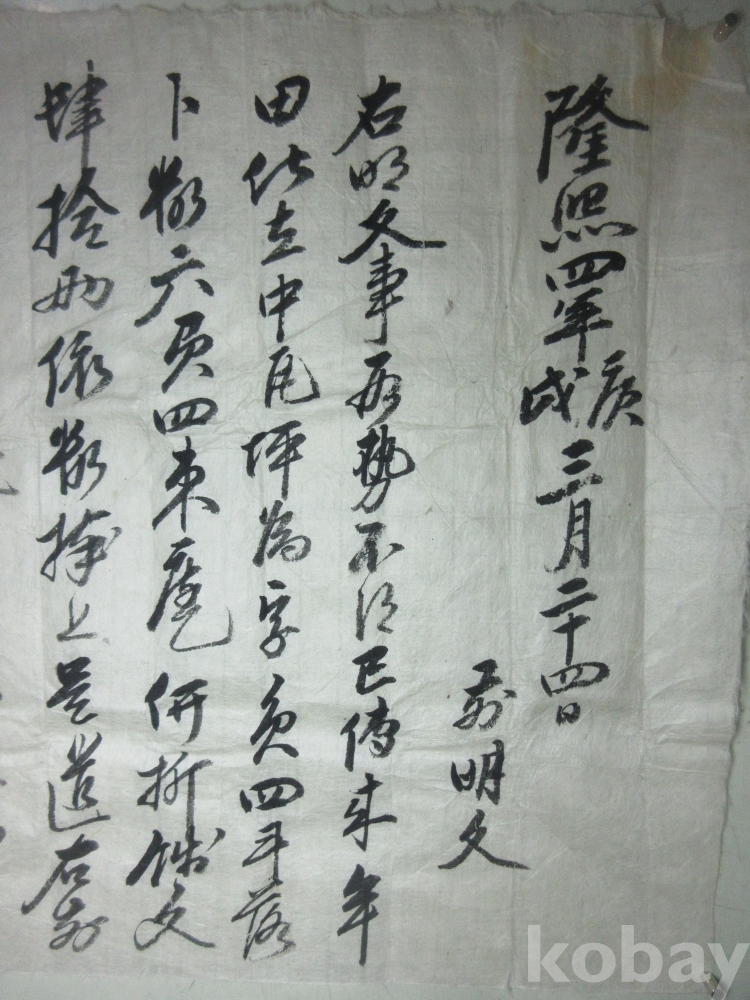 隆熙四年庚戌三月二十四日
前明文
右明文事段勢不得已傳來畓
田伏在中瓦坪為字負四斗落
卜數六負四束庫乙價折錢文
肆拾兩依數捧上是遣右前
kobay